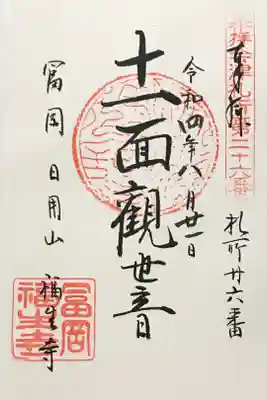 奉拝
札所廿六番
令和四年八月廿一日
十一面觀世音
冨岡 日用山 福生寺
冨岡
福生寺